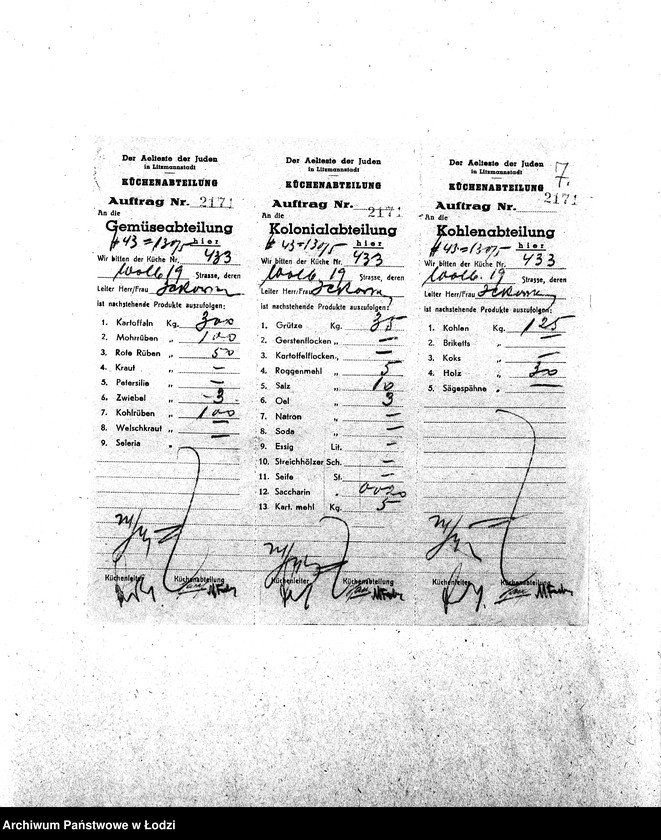 Der Aelteste der Juden
in Litzmannstadt
KÜCHENABTEILUNG
Auftrag Nr. 2171
An die
Gemüseabteilung
hier
Wir bitten der Küche Nr. 433
Wolb. 19 Strasse, deren
Leiter Herr/Frau
ist nachstehende Produkte auszufolgen:
1. Kartoffaln Kg. 300
2. Mohrrüben „ 100
3. Rote Rüben „ 50
4. Kraut „ —
5. Petersilie „ —
6. Zwiebel „ 3
7. Kohlrüben „ 100
8. Welschkraut „ —
9. Seleria „ —
Küchenleiter Küchenabteilung
Der Aelteste der Juden
in Litzmannstadt
KÜCHENABTEILUNG
Auftrag Nr. 2171
An die
Kolonialabteilung
hier
Wir bitten der Küche Nr. 433
Wolb. 19 Strasse, deren
Leiter Herr/Frau
ist nachstehende Produkte auszufolgen:
1. Grütze Kg. 35
2. Gerstenflocken „ —
3. Kartoffelflocken „ —
4. Roggenmehl „ 5
5. Salz „ 10
6. Oel „ 3
7. Natron „ —
8. Soda „ —
9. Essig Lit. —
10. Streichhölzer Sch. —
11. Seife St. —
12. Saccharin „
13 Kart. mehl Kg. 5
Küchenleiter Küchenabteilung
7.
Der Aelteste der Juden
in Litzmannstadt
KÜCHENABTEILUNG
Auftrag Nr. 2171
An die
Kohlenabteilung
hier
Wir bitten der Küche Nr. 433
Wolb. 19 Strasse, deren
Leiter Herr/Frau
ist nachstehende Produkte auszufolgen:
1. Kohlen Kg. 125
2. Briketts „ —
3. Koks „ —
4. Holz „ 30
5. Sägespähne „ —
Küchenleiter Küchenabteilung
Archiwum Państwowe w Łodzi